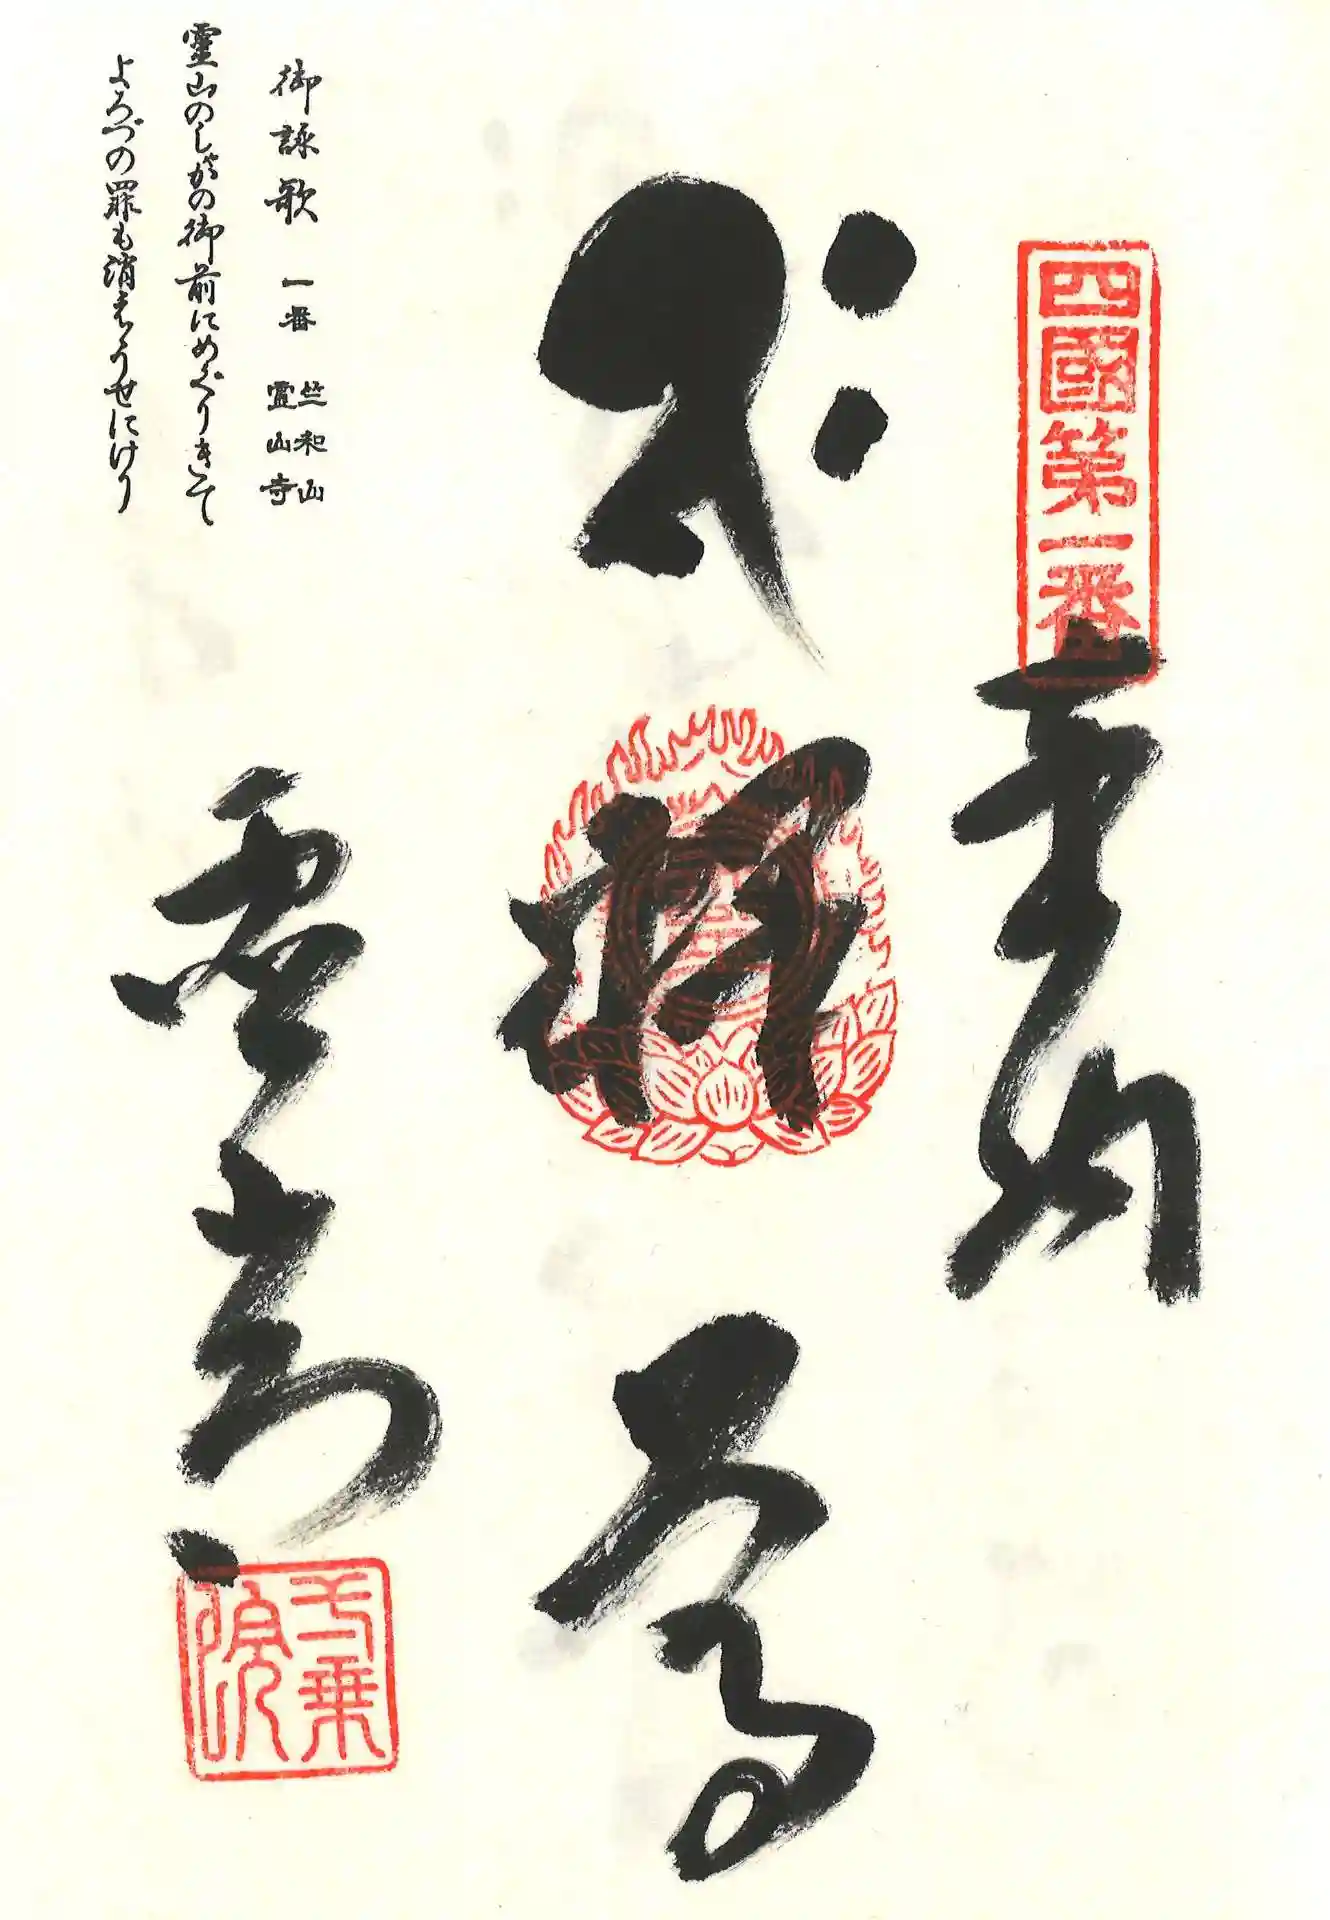 四國第一番
奉納
釈迦尊
霊山寺
一乗院
御詠歌 一番 竺和山 霊山寺
霊山のしやかの御前にめぐりきて
よろづの罪も消えうせにけり